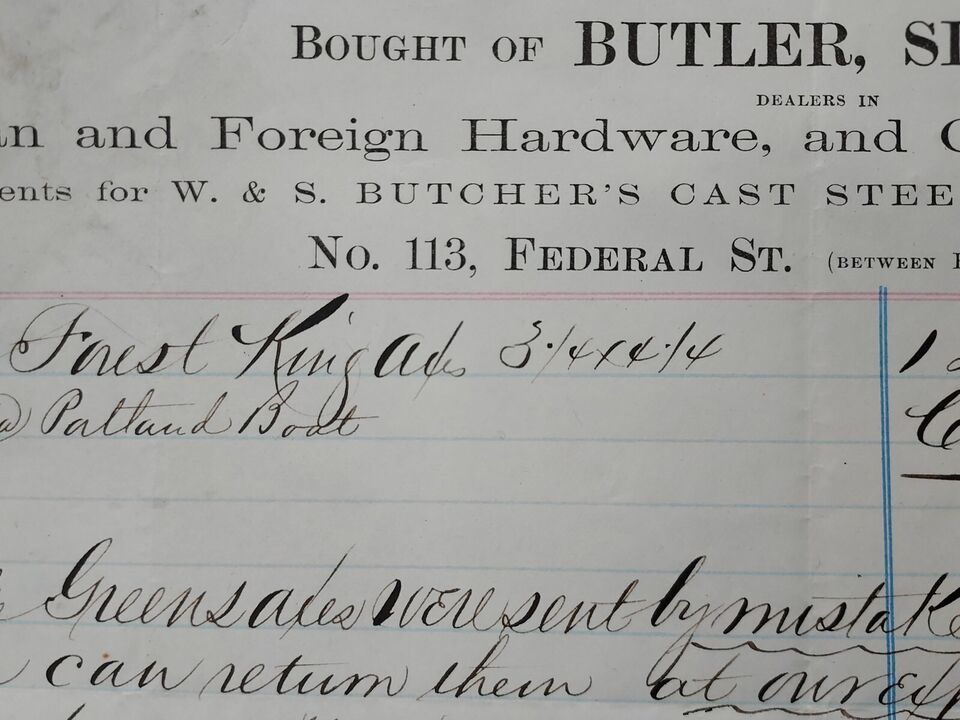 BOUGHT OF BUTLER, SI
DEALERS IN
an and Foreign Hardware, and C
ents for W. & S. BUTCHER'S CAST STEE
No. 113, FEDERAL ST. (BETWEEN
Forest King Axes 3¼x4¼
Portland Boat
Greens axes were sent by mistake
can return them at our exp